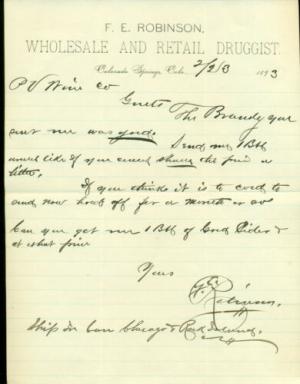 F. E. ROBINSON,
WHOLESALE AND RETAIL DRUGGIST.
Colorado Springs, Colo. 2/23 1893
P V Wine Co
Gents The Brandy you
sent me was good. Send me 1 Bbl
more like if you can't the price a
little.
If you think it is to cold to
send now hold off for a month or so
Can you get me 1 Bbl of Good Cider &
at what price
Yours
F. E. Robinson
Ship in Car Chicago & Rock Island.